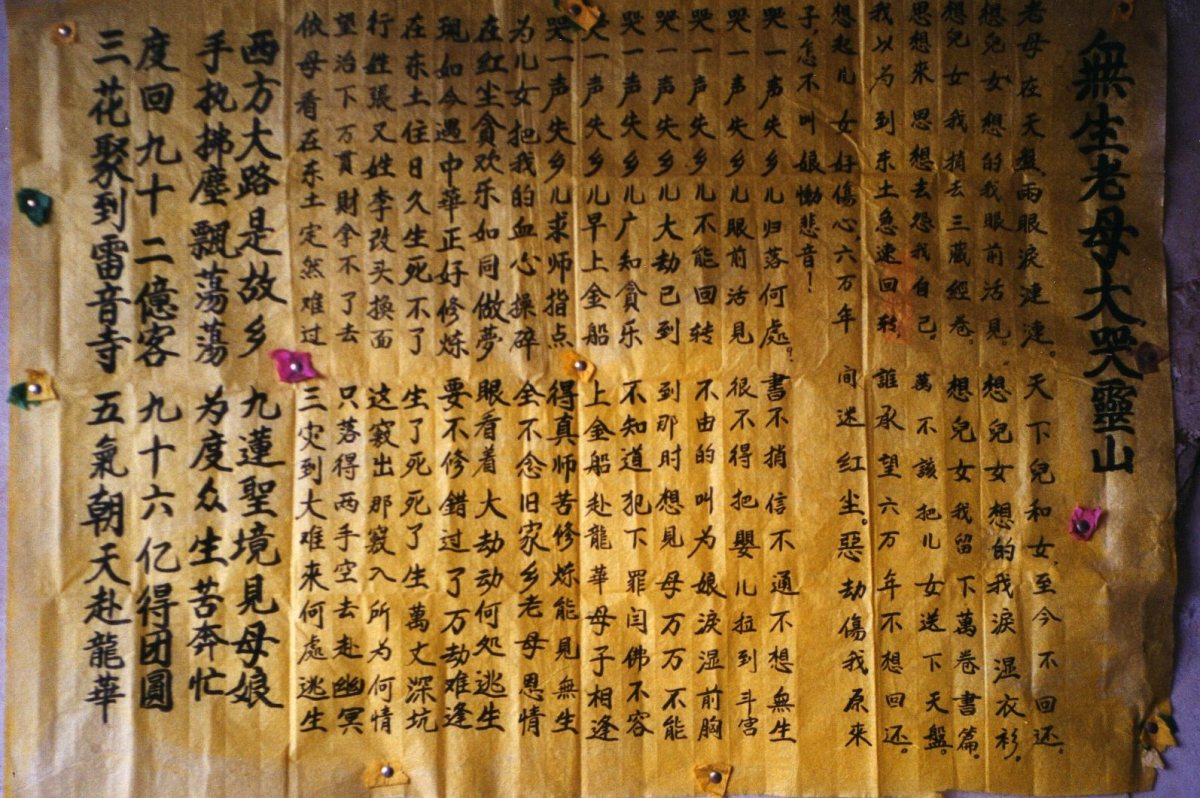 無生老母大哭靈山
老母在天盤雨眼淚漣漣。天下兒和女至今不回还。
想兒女想的我眼前活見。想兒女想的我淚濕衣衫。
想兒女我捎去三藏經卷。想兒女我留下萬卷書篇。
思想來思想去怨我自己。萬不該把儿女送下天盤。
我以为到东土急速回转。誰承望六万年不想回还。
想起儿女好傷心六万年间迷红尘。惡劫傷我原來
子怎不叫娘慟悲音！
哭一声失乡儿归落何處？書不捎信不通不想無生
哭一声失乡儿眼前活見很不得把嬰儿拉到斗宫
哭一声失乡儿不能回转不由的叫为娘淚湿前胸
哭一声失乡儿大劫已到到那时想見母万万不能
哭一声失乡儿广知貪乐不知道犯下罪闫佛不容
哭一声失乡儿早上金船上金船赴龍華母子相逢
哭一声失乡儿求师指点得真师苦修炼能見無生
为儿女把我的血心操碎全不念旧家乡老母恩情
在红尘貪欢乐如同做夢眼看着大劫动何処逃生
現如今遇中華正好修炼要不修錯过了万劫难逢
在东土住日久生死不了生了死死了生萬丈深坑
行姓張又姓李改头換面这竅出那竅入所为何情
望治下万貫財拿不了去只落得两手空去赴幽冥
依母看在东土定然难过三灾到大难来何處逃生
西方大路是故乡九蓮聖境見母娘
手执拂塵飄蕩蕩为度众生苦奔忙
度回九十二億客九十六亿得团圓
三花聚到雷音寺五氣朝天赴龍華